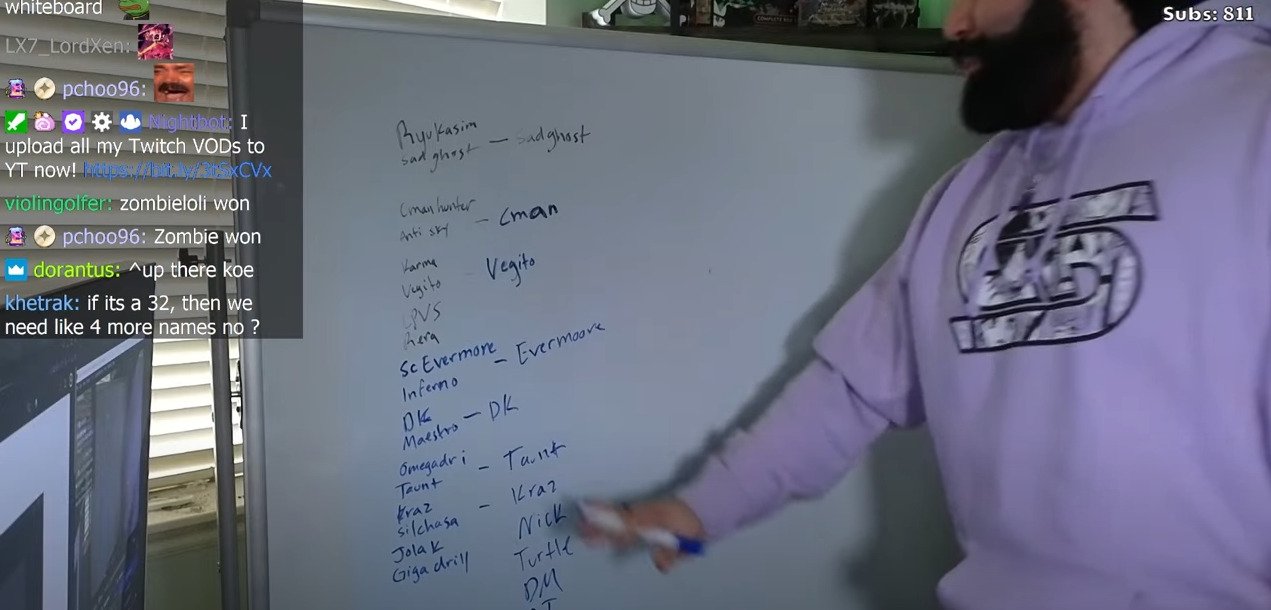 whiteboard
LX7_LordXen:
pchoo96:
Nightbot: I
upload all my Twitch VODs to
YT now! https://bit.ly/3tSxCVx
violingolfer: zombieloli won
pchoo96: Zombie won
dorantus: ^up there koe
khetrak: if its a 32, then we
need like 4 more names no ?
Subs: 811
Ryukasim
sadghost — sadghost
Cmanhunter
Anti sky — Cman
Karma
Vegito — Vegito
Sc Evermore
Inferno — Evermoore
DK
Maestro — DK
Omegadri
Taunt — Taunt
Kraz
silchasa — Kraz
Jolak
Gigadrill
Nick
Turtle
DM